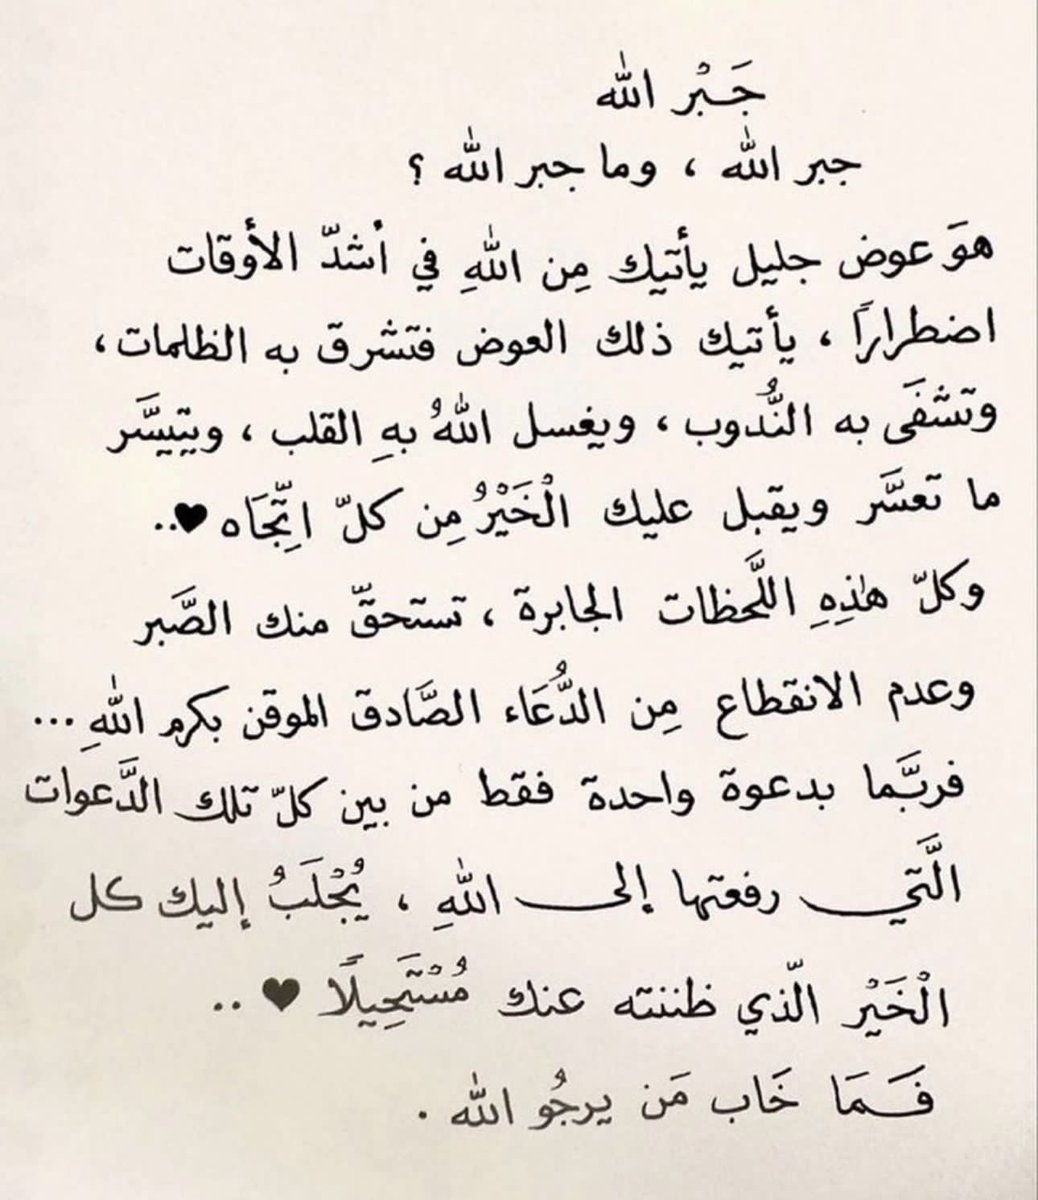 جَبْر الله
جبر الله ، وما جبر الله ؟
هوَ عوض جليل يأتيك مِن اللهِ في أشدّ الأوقات
اضطرارًا ، يأتيك ذلك العوض فتشرق به الظلمات ،
وتشفَى به النُّدوب ، ويغسل اللهُ بهِ القلب ، ويتيسَّر
ما تعسَّر ويقبل عليك الْخَيْرُ مِن كلّ اتِّجَاه ♥..
وكلّ هٰذِهِ اللَّحظات الجابرة ، تستحقّ منك الصَّبر
وعدم الانقطاع مِن الدُّعَاء الصَّادق الموقن بكرم اللهِ ...
فربَّما بدعوة واحدة فقط من بين كلّ تلك الدَّعوات
الَّتي رفعتها إلى اللهِ ، يُجْلَبُ إليك كل
الْخَيْر الّذي ظننته عنك مُسْتَحِيلًا ♥ ..
فَمَا خَاب مَن يرجُو الله .